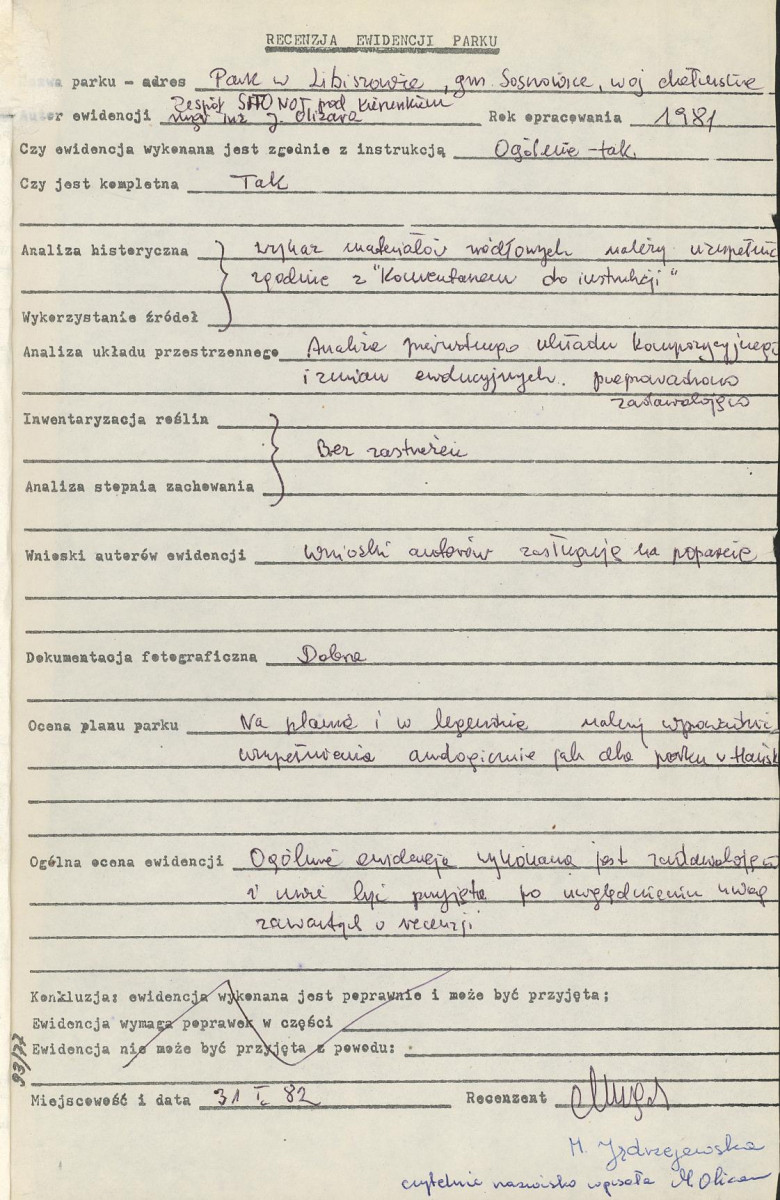 RECENZJA EWIDENCJI PARKU
parku - adres Park w Libiszowie, gm. Sosnowica, woj chełmskie
Zespół SITO NOT pod kierunkiem
Autor ewidencji mgr inż J. Olizara Rok opracowania 1981
Czy ewidencja wykonana jest zgodnie z instrukcją Ogólnie - tak.
Czy jest kompletna Tak
Analiza historyczna wykaz materiałów źródłowych należy uzupełnić
zgodnie z "Komentarzem do instrukcji"
Wykorzystanie źródeł
Analiza układu przestrzennego Analiza pierwotnego układu kompozycyjnego
i zmian ewolucyjnych. przeprowadzono
zadawalająco
Inwentaryzacja roślin
Bez zastrzeżeń
Analiza stopnia zachowania
Wnioski autorów ewidencji wnioski autorów zasługują na poparcie
Dokumentacja fotograficzna Dobra
Ocena planu parku Na planie i w legendzie należy wprowadzić
uzupełnienia analogicznie jak dla parku w Hańsk
Ogólna ocena ewidencji Ogólnie ewidencja wykonana jest zadawalająco
i może być przyjęta po uwzględnieniu uwag
zawartych w recenzji
Konkluzja: ewidencja wykonana jest poprawnie i może być przyjęta;
Ewidencja wymaga poprawek w części
Ewidencja nie może być przyjęta z powodu:
93/77
Miejscowość i data 31 I. 82 Recenzent
M. Jędrzejewska
czytelnie nazwisko wpisała M.